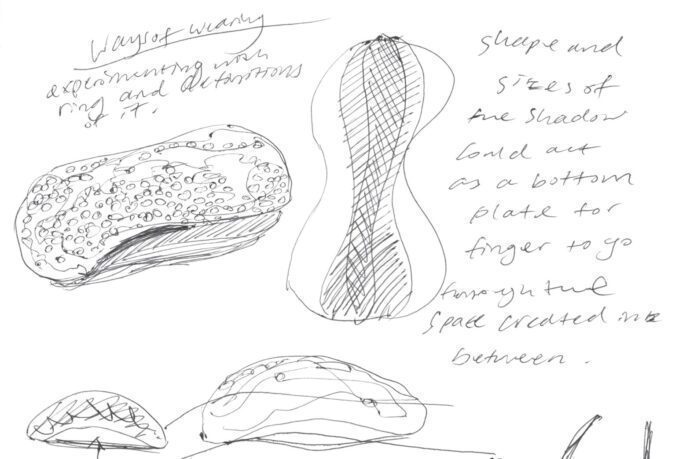 Ways of wearing
experimenting with
ring and definitions
of it.
Shape and
sizes of
the shadow
could act
as a bottom
plate for
finger to go
through the
space created in
between.